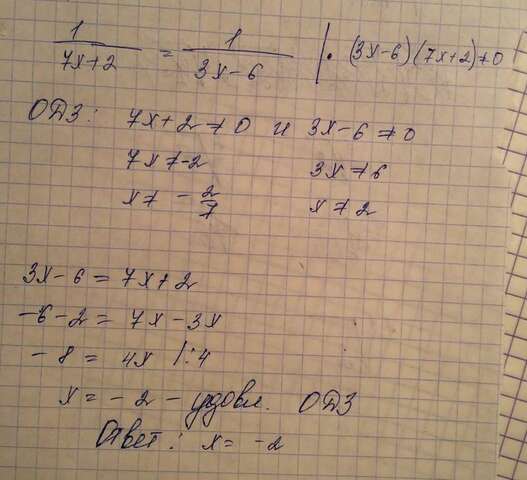 1/(7x+2) = 1/(3x-6) | · (3x-6)(7x+2)≠0
ОДЗ: 7x+2≠0 и 3x-6≠0
7x≠-2 3x≠6
x≠ -2/7 x≠2
3x-6 = 7x+2
-6-2 = 7x-3x
-8 = 4x |:4
x = -2 - удовл. ОДЗ
Ответ: x = -2